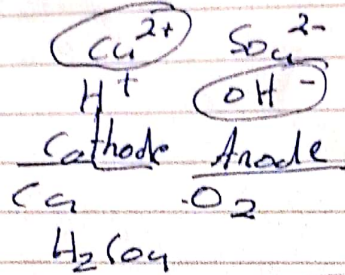 Cu²⁺ SO₄²⁻
H⁺ OH⁻
Cathode Anode
Cu O₂
H₂SO₄